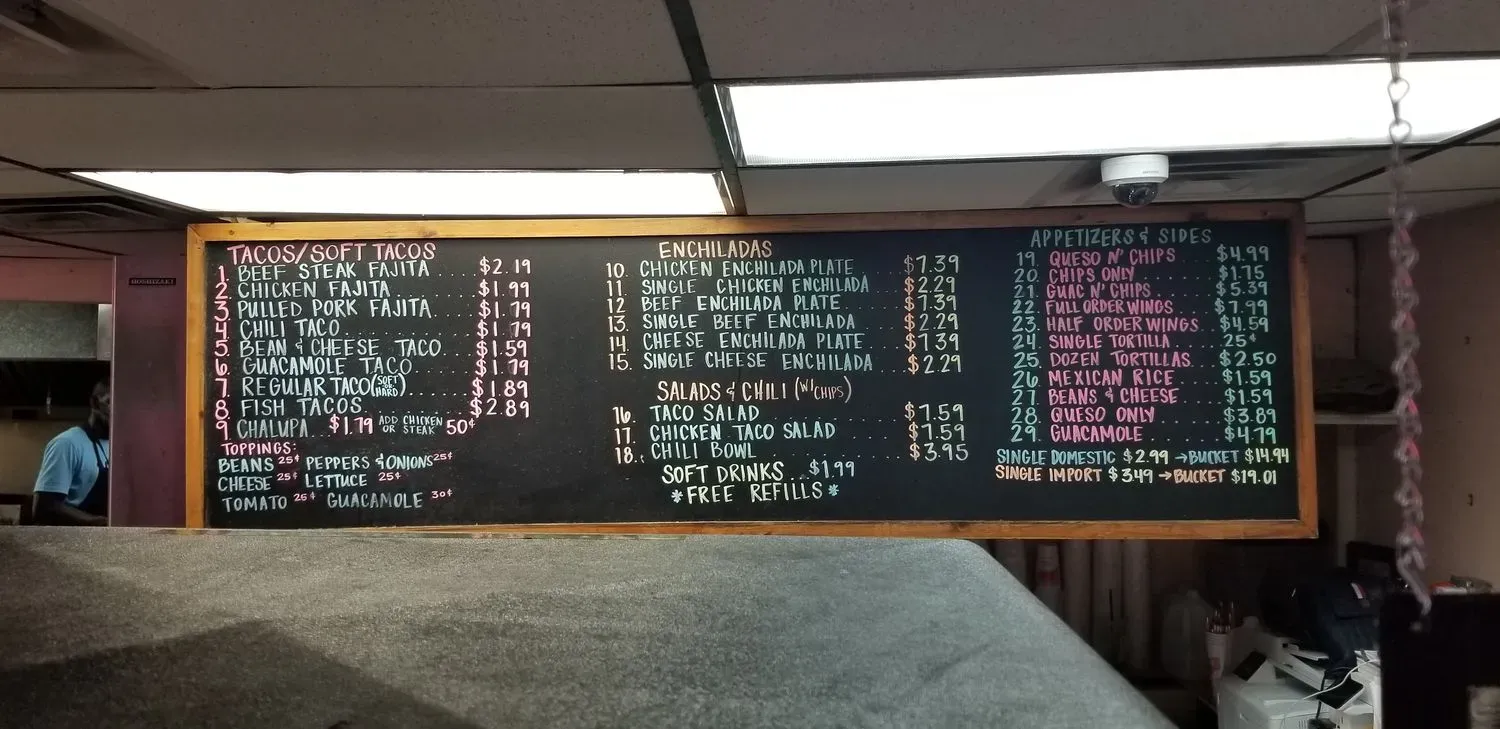 HOSHIZAKI
TACOS/SOFT TACOS
1. BEEF STEAK FAJITA .... $2.19
2. CHICKEN FAJITA ..... $1.99
3. PULLED PORK FAJITA .... $1.79
4. CHILI TACO ....... $1.79
5. BEAN & CHEESE TACO ... $1.59
6. GUACAMOLE TACO ..... $1.79
7. REGULAR TACO (SOFT OR HARD) ..... $1.89
8. FISH TACOS ........ $2.89
9. CHALUPA .. $1.79 ADD CHICKEN OR STEAK 50¢
TOPPINGS:
BEANS 25¢ PEPPERS & ONIONS 25¢
CHEESE 25¢ LETTUCE 25¢
TOMATO 25¢ GUACAMOLE 30¢
ENCHILADAS
10. CHICKEN ENCHILADA PLATE .... $7.39
11. SINGLE CHICKEN ENCHILADA ... $2.29
12 BEEF ENCHILADA PLATE ..... $7.39
13. SINGLE BEEF ENCHILADA .... $2.29
14. CHEESE ENCHILADA PLATE .... $7.39
15. SINGLE CHEESE ENCHILADA ... $2.29
SALADS & CHILI (W/ CHIPS)
16. TACO SALAD .......... $7.59
17. CHICKEN TACO SALAD ..... $7.59
18. CHILI BOWL .......... $3.95
SOFT DRINKS ... $1.99
*FREE REFILLS*
APPETIZERS & SIDES
19. QUESO N' CHIPS .... $4.99
20. CHIPS ONLY ....... $1.75
21. GUAC N' CHIPS ..... $5.39
22. FULL ORDER WINGS .... $7.99
23. HALF ORDER WINGS ... $4.59
24. SINGLE TORTILLA .... 25¢
25. DOZEN TORTILLAS ... $2.50
26. MEXICAN RICE ..... $1.59
27. BEANS & CHEESE .... $1.59
28. QUESO ONLY ...... $3.89
29. GUACAMOLE ....... $4.79
SINGLE DOMESTIC $2.99 → BUCKET $14.94
SINGLE IMPORT $3.49 → BUCKET $19.01